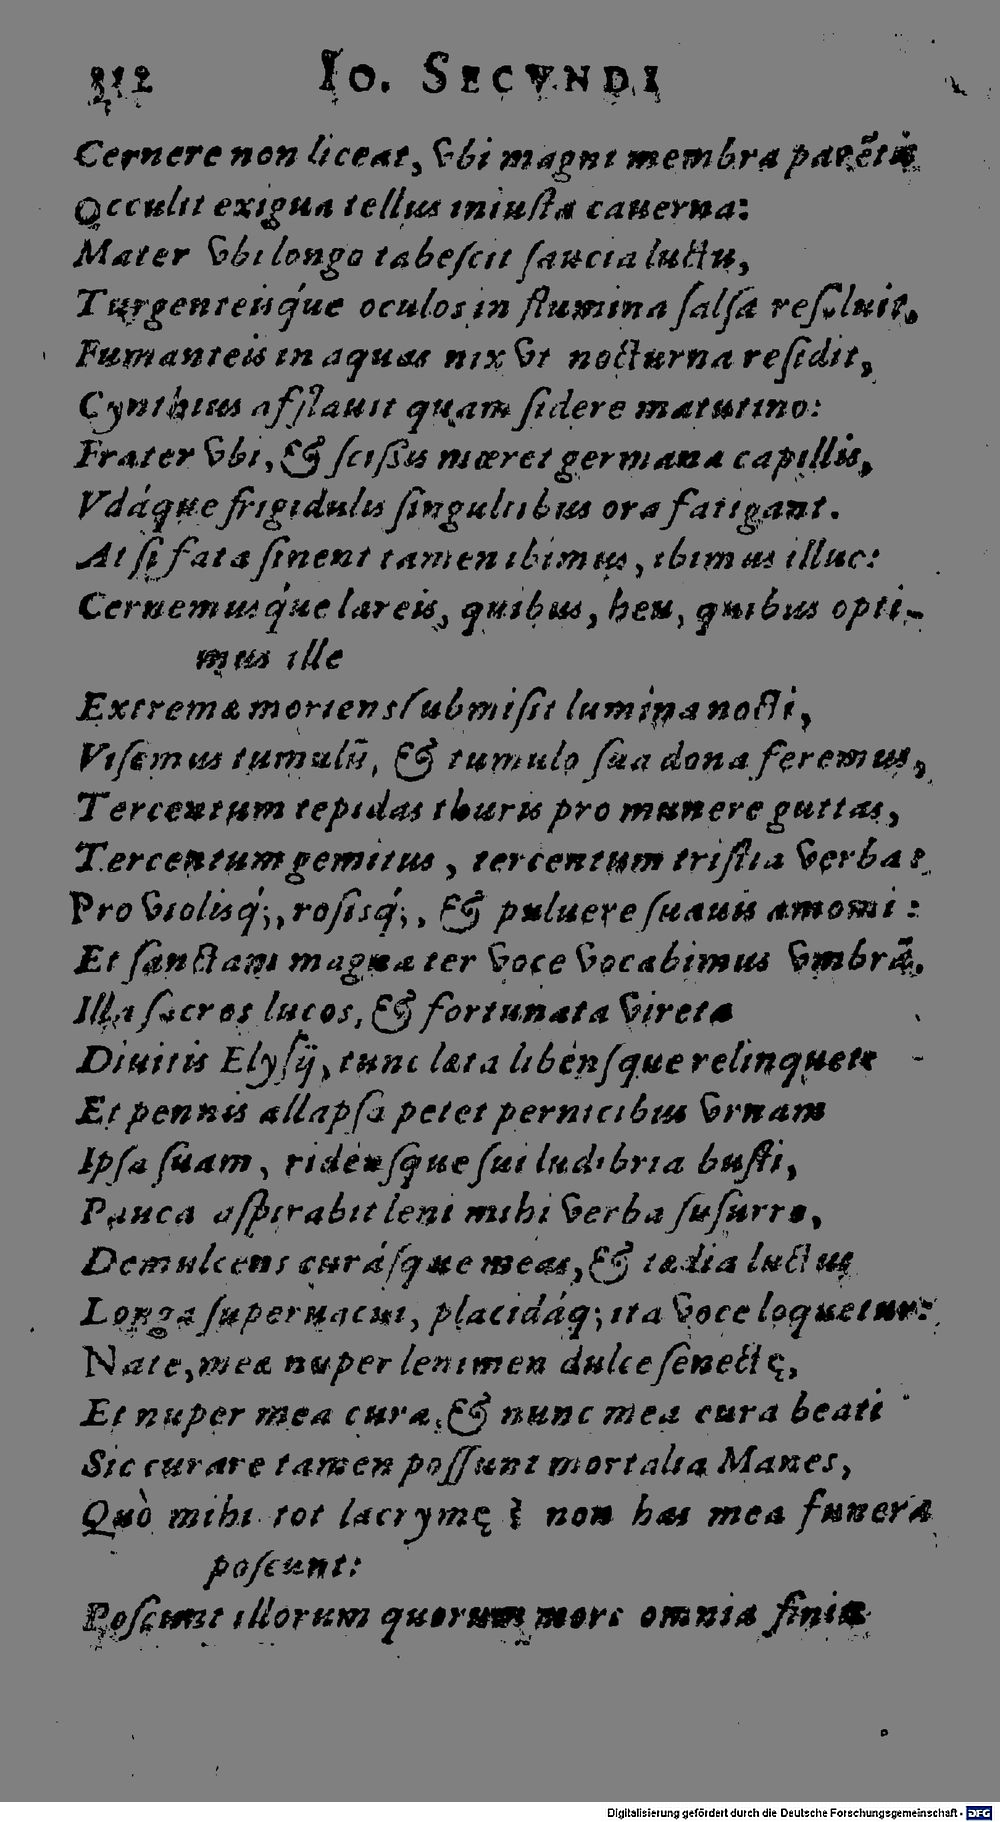 312 Io. SECVNDI
Cernere non liceat, vbi magni membra parẽtis
Occulit exigua tellus iniusta cauerna:
Mater vbi longo tabescit saucia luctu,
Turgenteisq́ue oculos in flumina salsa resoluit.
Fumanteis in aquas nix vt nocturna residit,
Cynthius afflauit quam sidere matutino:
Frater vbi, & scissis mæret germana capillis,
Vdáque frigidulis singultibus ora fatigant.
At si fata sinent tamen ibimus, ibimus illuc:
Cernemusq́ue lareis, quibus, heu, quibus opti-
mus ille
Extrema moriens submisit lumina nocti,
Visemus tumulũ, & tumulo sua dona feremus,
Tercentum tepidas thuris pro munere guttas,
Tercentum gemitus, tercentum tristia verba:
Pro violisq́;, rosisq́;, & puluere suauis amomi:
Et sanctam magna ter voce vocabimus vmbrã.
Illa sacros lucos, & fortunata vireta
Diuitis Elysij, tunc læta libénsque relinquet:
Et pennis allapsa petet pernicibus vrnam
Ipsa suam, ridénsque sui ludibria busti,
Pauca aspirabit leni mihi verba susurro,
Demulcens curásque meas, & tædia luctus
Longa superuacui, placidáq; ita voce loquetur:
Nate, meæ nuper lenimen dulce senectę,
Et nuper mea cura, & nunc mea cura beati
Sic curare tamen possunt mortalia Manes,
Quò mihi tot lacrymę? non has mea funera
poscunt:
Poscunt illorum quorum mors omnia finit
Digitalisierung gefördert durch die Deutsche Forschungsgemeinschaft - DFG